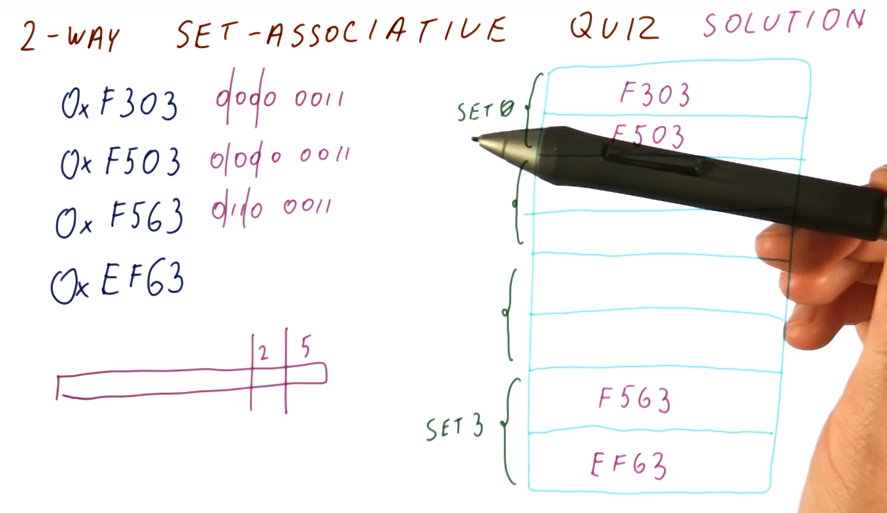 2-WAY SET-ASSOCIATIVE QUIZ SOLUTION
0x F303 0000 0011
0x F503 0000 0011
0x F563 0110 0011
0x EF63
2 5
SET 0
F303
F503
SET 3
F563
EF63